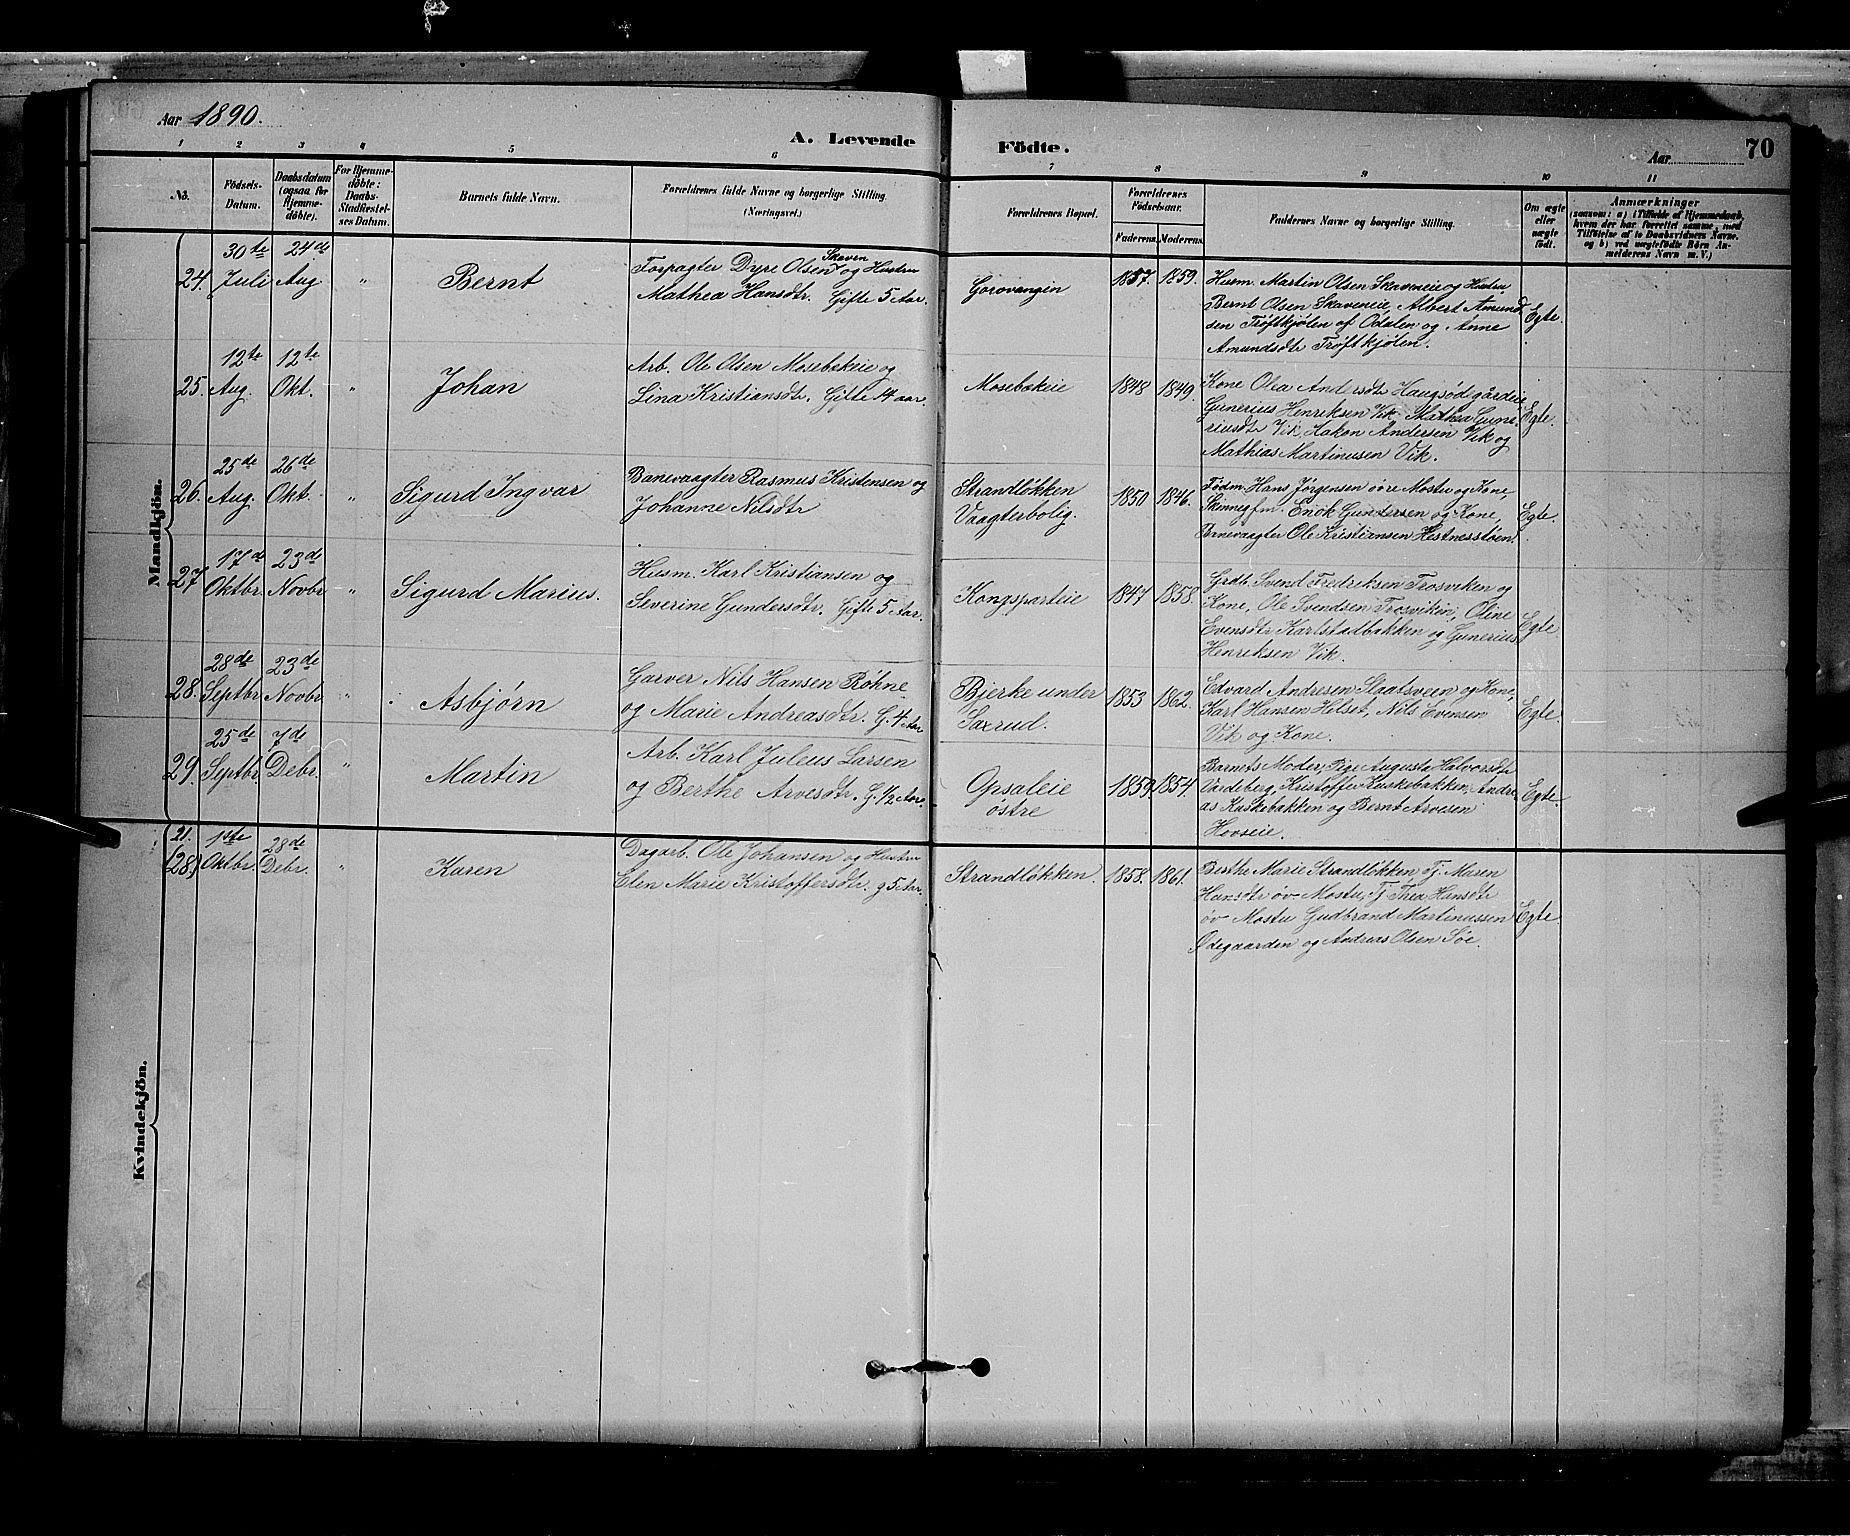 Aar 1890.
A. Levende Födte.
Aar 70
1 2 3 4 5 6 7 8 9 10 11
No.
Födsels-Datum.
Daabsdatum (ogsaa for Hjemme-döbte).
For Hjemme-döbte: Daabs-Stadfæstel-ses Datum.
Barnets fulde Navn.
Forældrenes fulde Navne og borgerlige Stilling. (Næringsvei.)
Forældrenes Bopæl.
Forældrenes Födselsaar.
Faderens. Moderens.
Faddernes Navne og borgerlige Stilling.
Om ægte eller uægte födt.
Anmærkninger
(saasom: a) i Tilfælde af Hjemmedaab, hvem der har forrettet samme, med Tilföielse af to Daabsvidners Navne. og b) ved uægtefödte Börn An-melderens Navn m. V.)
Mandkjön.
24. 30te Juli 24de Aug. " Bernt
Forpagter Dyre Olsen Skaven og Hustru
Mathea Hansdtr. Gifte 5 Aar.
Gorovangin 1857. 1859.
Husm. Martin Olsen Skaveneie og Hustru,
Bernt Olsen Skaveneie, Albert Amund
sen Trøftkjølen af Odalen og Anne
Amundsdtr Trøftkjølen.
Egte.
25. 12te Aug. 12te Okt. " Johan
Arb. Ole Olsen Mosebækeie og
Lina Kristiansdtr. Gifte 14 aar.
Mosebækeie 1848 1849.
Kone Olea Andersdtr Haugsødgårdeie
Gunerius Henriksen Vik, Mathea Gune-
riusdtr Vik, Hakon Andersen Vik og
Mathias Martinusen Vik.
Egte.
26. 25de Aug. 26de Okt. " Sigurd Ingvar
Banevaagter Rasmus Kristensen og
Johanne Nilsdtr
Strandløkken
Vaagterbolig. 1850 1846.
Fødm. Hans Jørgensen øvre Mostu og Kone,
Skinnegfm. Enok Gundersen og Kone,
Banevaagter Ole Kristiansen Hestnesstøen.
Egte.
27 17de Oktbr. 23de Novbr. " Sigurd Marius.
Husm. Karl Kristiansen og
Severine Gundersdtr. Gifte 5 Aar.
Kongsparteie 1847 1858.
Grdb. Svend Fredriksen Trosviken og
Kone, Ole Svendsen Trosviken, Oline
Evensdtr Karlstadbakken og Gunerius
Henriksen Vik.
Egte
28. 28de Septbr. 23de Novbr " Asbjørn
Garver Nils Hansen Røhne
og Marie Andreasdtr. G. 4 Aar
Bjerke under
Saxrud. 1853 1862.
Edvard Andresen Staatsveen og Kone,
Karl Hansen Helset, Nils Evensen
Vik og Kone.
Egte.
29. 25de Septbr. 7de Debr. " Martin
Arb. Karl Julius Larsen
og Berthe Arvesdtr. G. 1/2 Aar.
Opsaleie
østre 1859 1854.
Barnets Moder, Pige Augusta Halvorsdtr
Vardeberg, Kristoffer Kuskebakken, Andre-
as Kuskebakken og Bernt Arvesen
Hovseie.
Egte.
Kvindekjön.
21. (28) 1ste Oktbr. 28de Debr. " Karen
Dagarb. Ole Johansen og Hustru
Elen Marie Kristoffersdtr. g 5 Aar.
Strandløkken. 1858. 1861.
Berthe Marie Strandløkken, Tj. Maren
Hansdtr øv. Mostu, Tj. Thea Hansdtr
øv. Mostu Gudbrand Martinussen
Ødegaarden og Andreas Olsen Søe.
Egte.